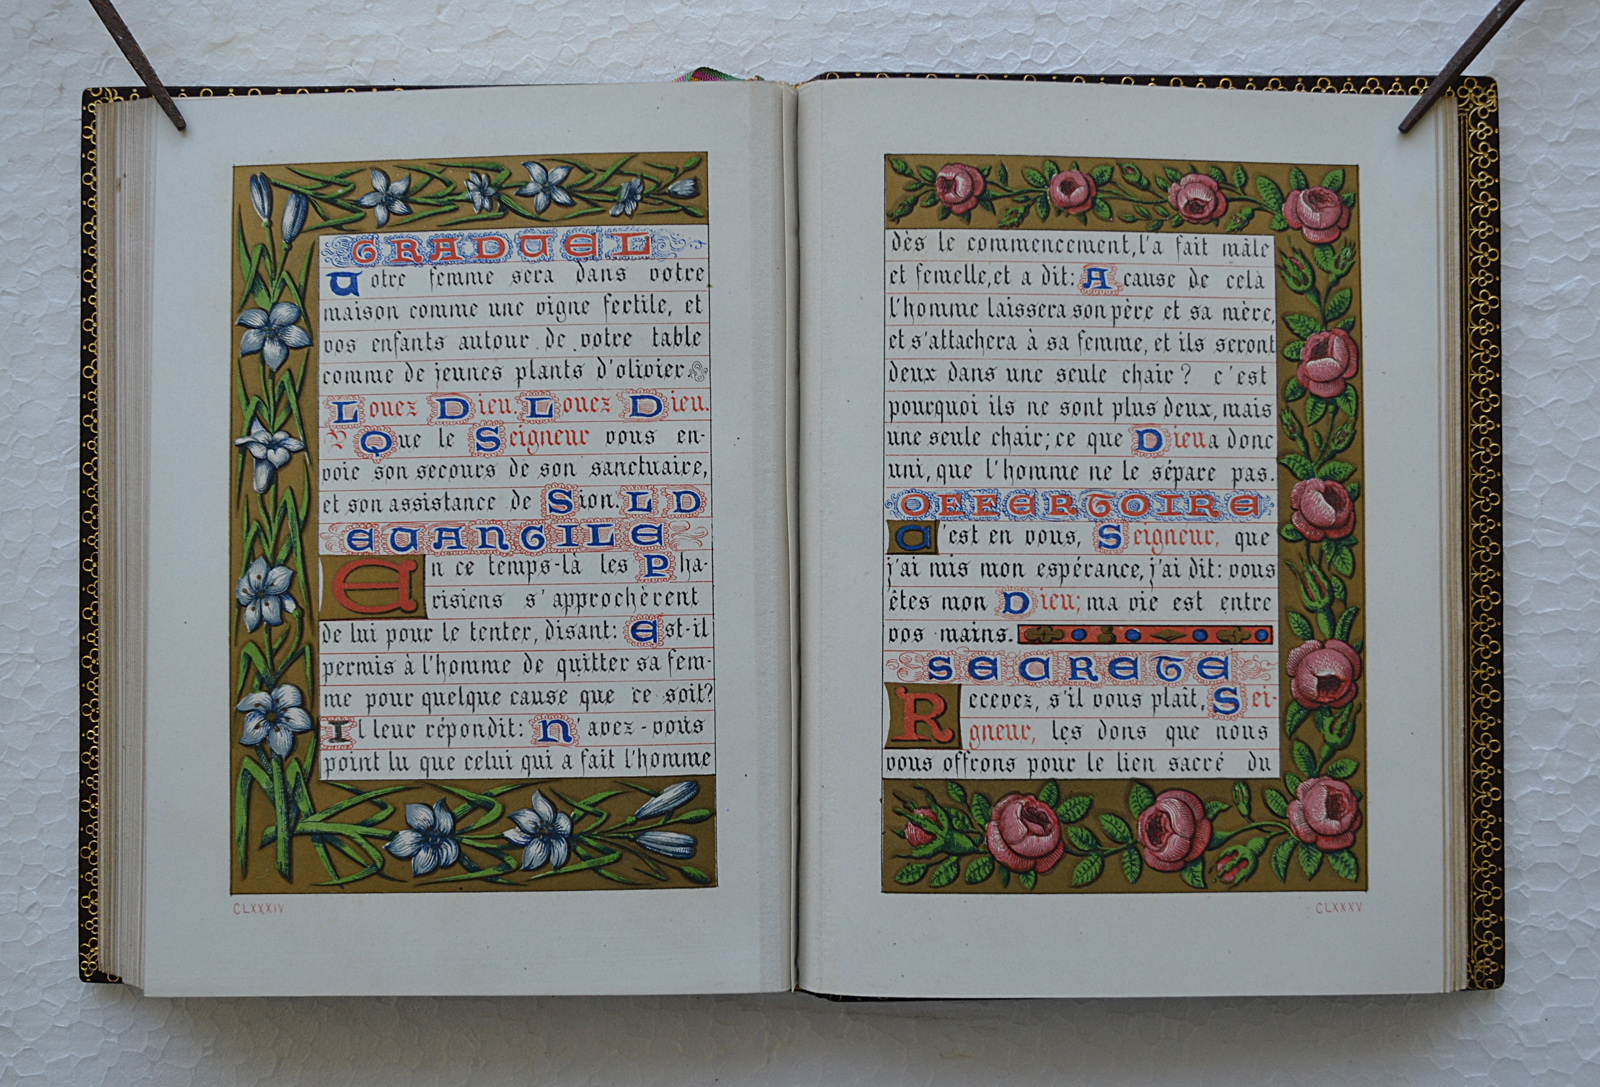 GRADUEL
Votre femme sera dans votre
maison comme une vigne fertile, et
vos enfants autour de votre table
comme de jeunes plants d'olivier.
Louez Dieu. Louez Dieu.
℣ Que le Seigneur vous en-
voie son secours de son sanctuaire,
et son assistance de Sion. L D
EVANGILE
En ce temps-là les Pha-
risiens s'approchèrent
de lui pour le tenter, disant: Est-il
permis à l'homme de quitter sa fem-
me pour quelque cause que ce soit?
Il leur répondit: N'avez-vous
point lu que celui qui a fait l'homme
CLXXXIV
dès le commencement, l'a fait mâle
et femelle, et a dit: A cause de celà
l'homme laissera son père et sa mère,
et s'attachera à sa femme, et ils seront
deux dans une seule chair? c'est
pourquoi ils ne sont plus deux, mais
une seule chair; ce que Dieu a donc
uni, que l'homme ne le sépare pas.
OFFERTOIRE
C'est en vous, Seigneur, que
j'ai mis mon espérance, j'ai dit: vous
êtes mon Dieu; ma vie est entre
vos mains.
SECRETE
Recevez, s'il vous plait, Sei-
gneur, les dons que nous
vous offrons pour le lien sacré du
CLXXXV